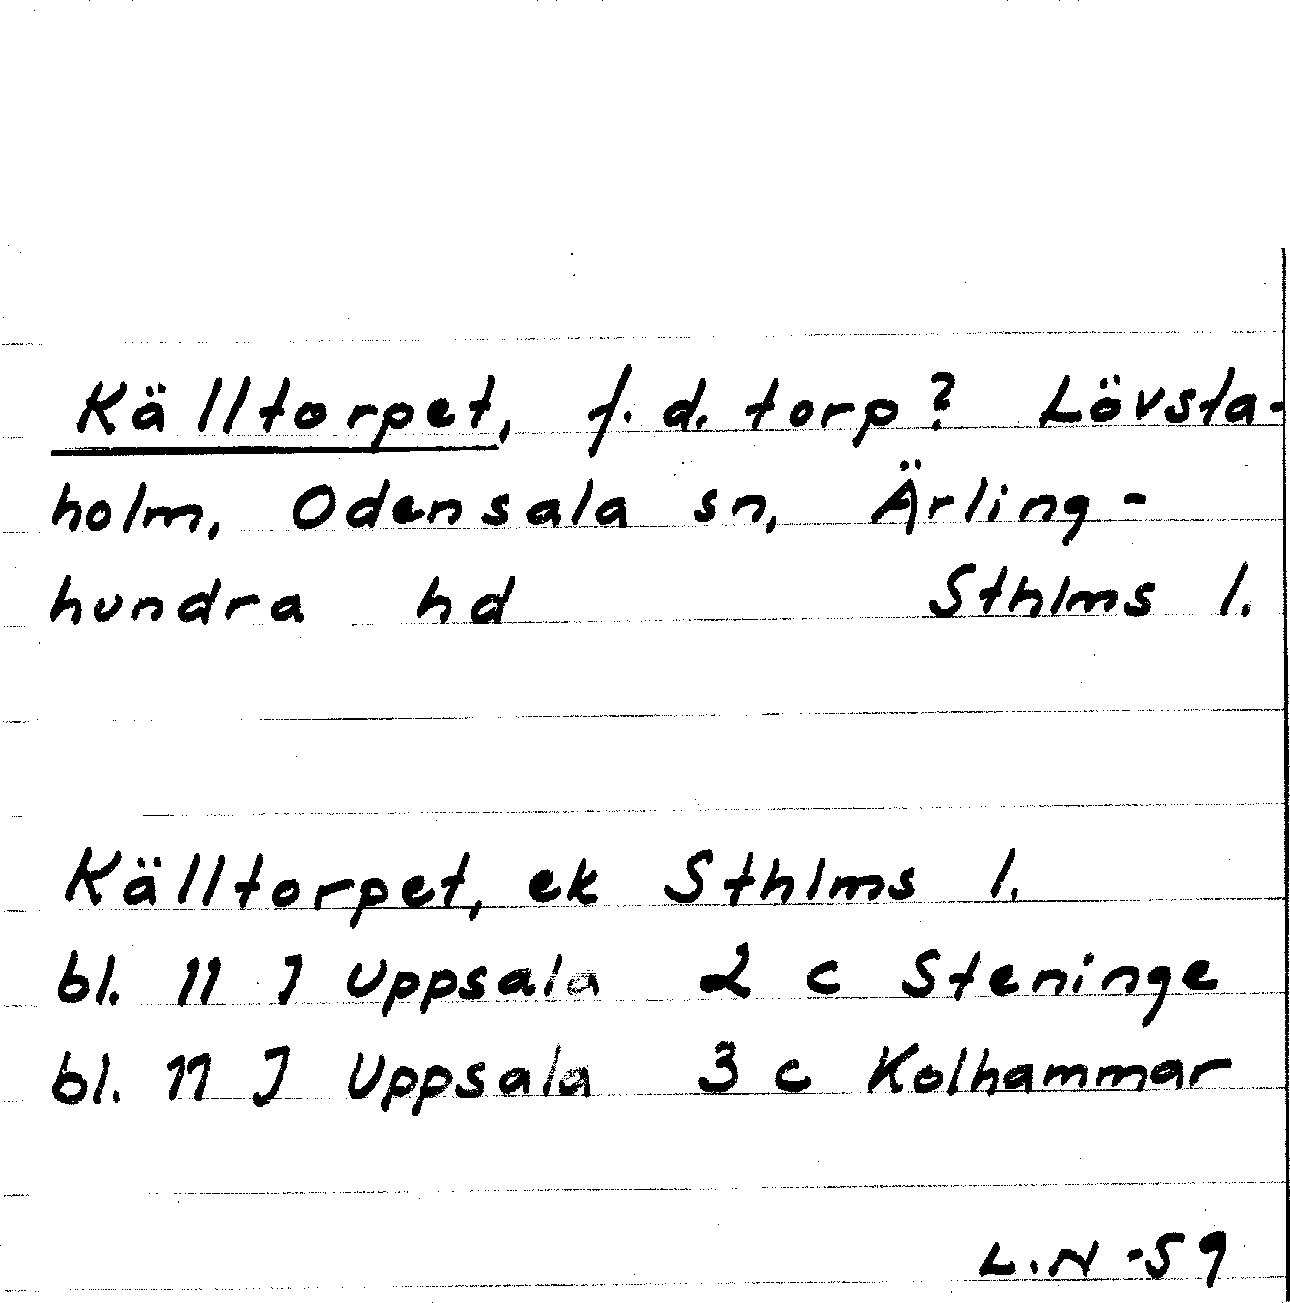 Källtorpet, f. d. torp? Lövsta-
holm, Odensala sn, Ärling-
hundra hd Sthlms l.
Källtorpet, ek Sthlms l.
bl. 11 J Uppsala 2 c Steninge
bl. 11 J Uppsala 3 c Kolhammar
L.N -59